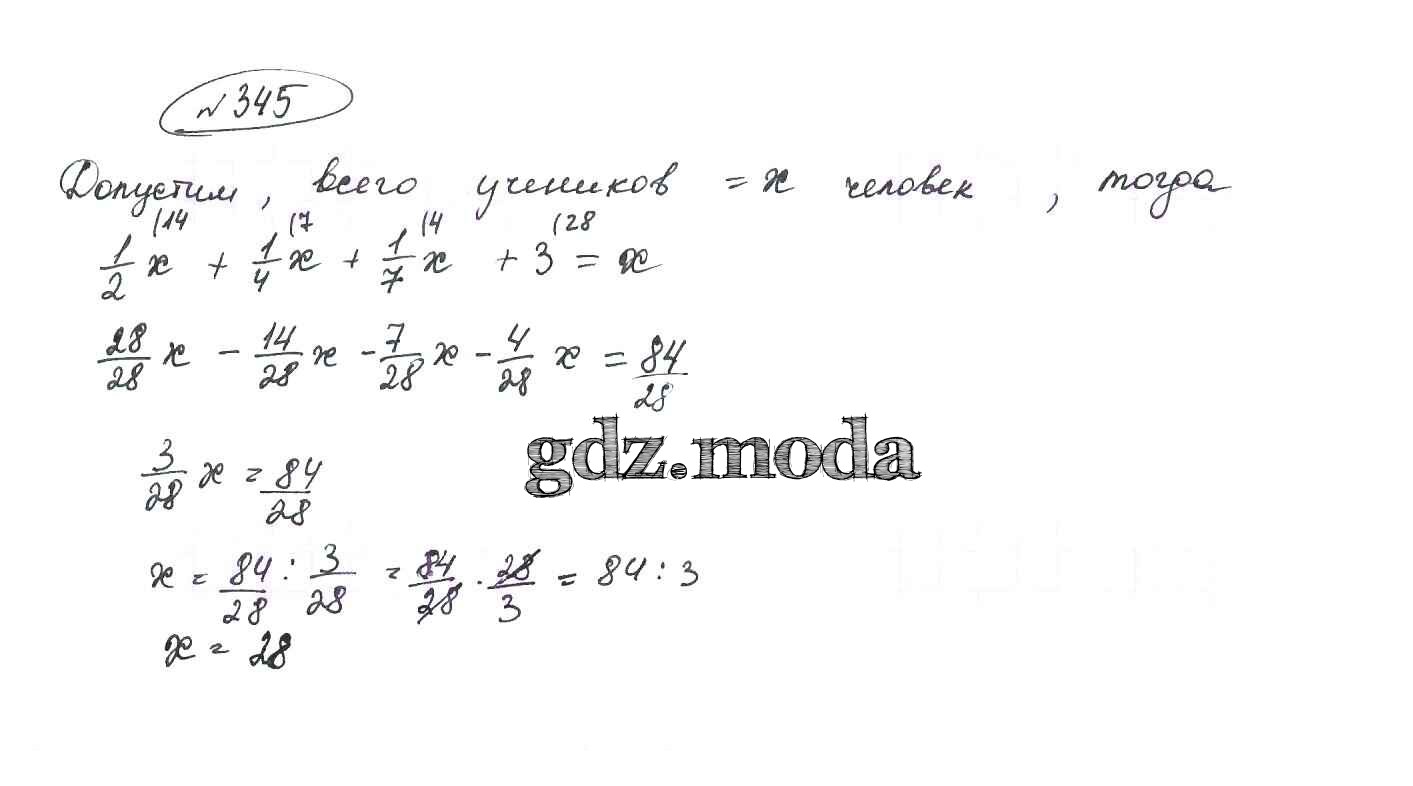 №345
Допустим, всего учеников = x человек, тогда
(14 (7 (4 (28
1/2 x + 1/4 x + 1/7 x + 3 = x
28/28 x - 14/28 x - 7/28 x - 4/28 x = 84/28
gdz.moda
3/28 x = 84/28
x = 84/28 : 3/28 = 84/28 · 28/3 = 84 : 3
x = 28